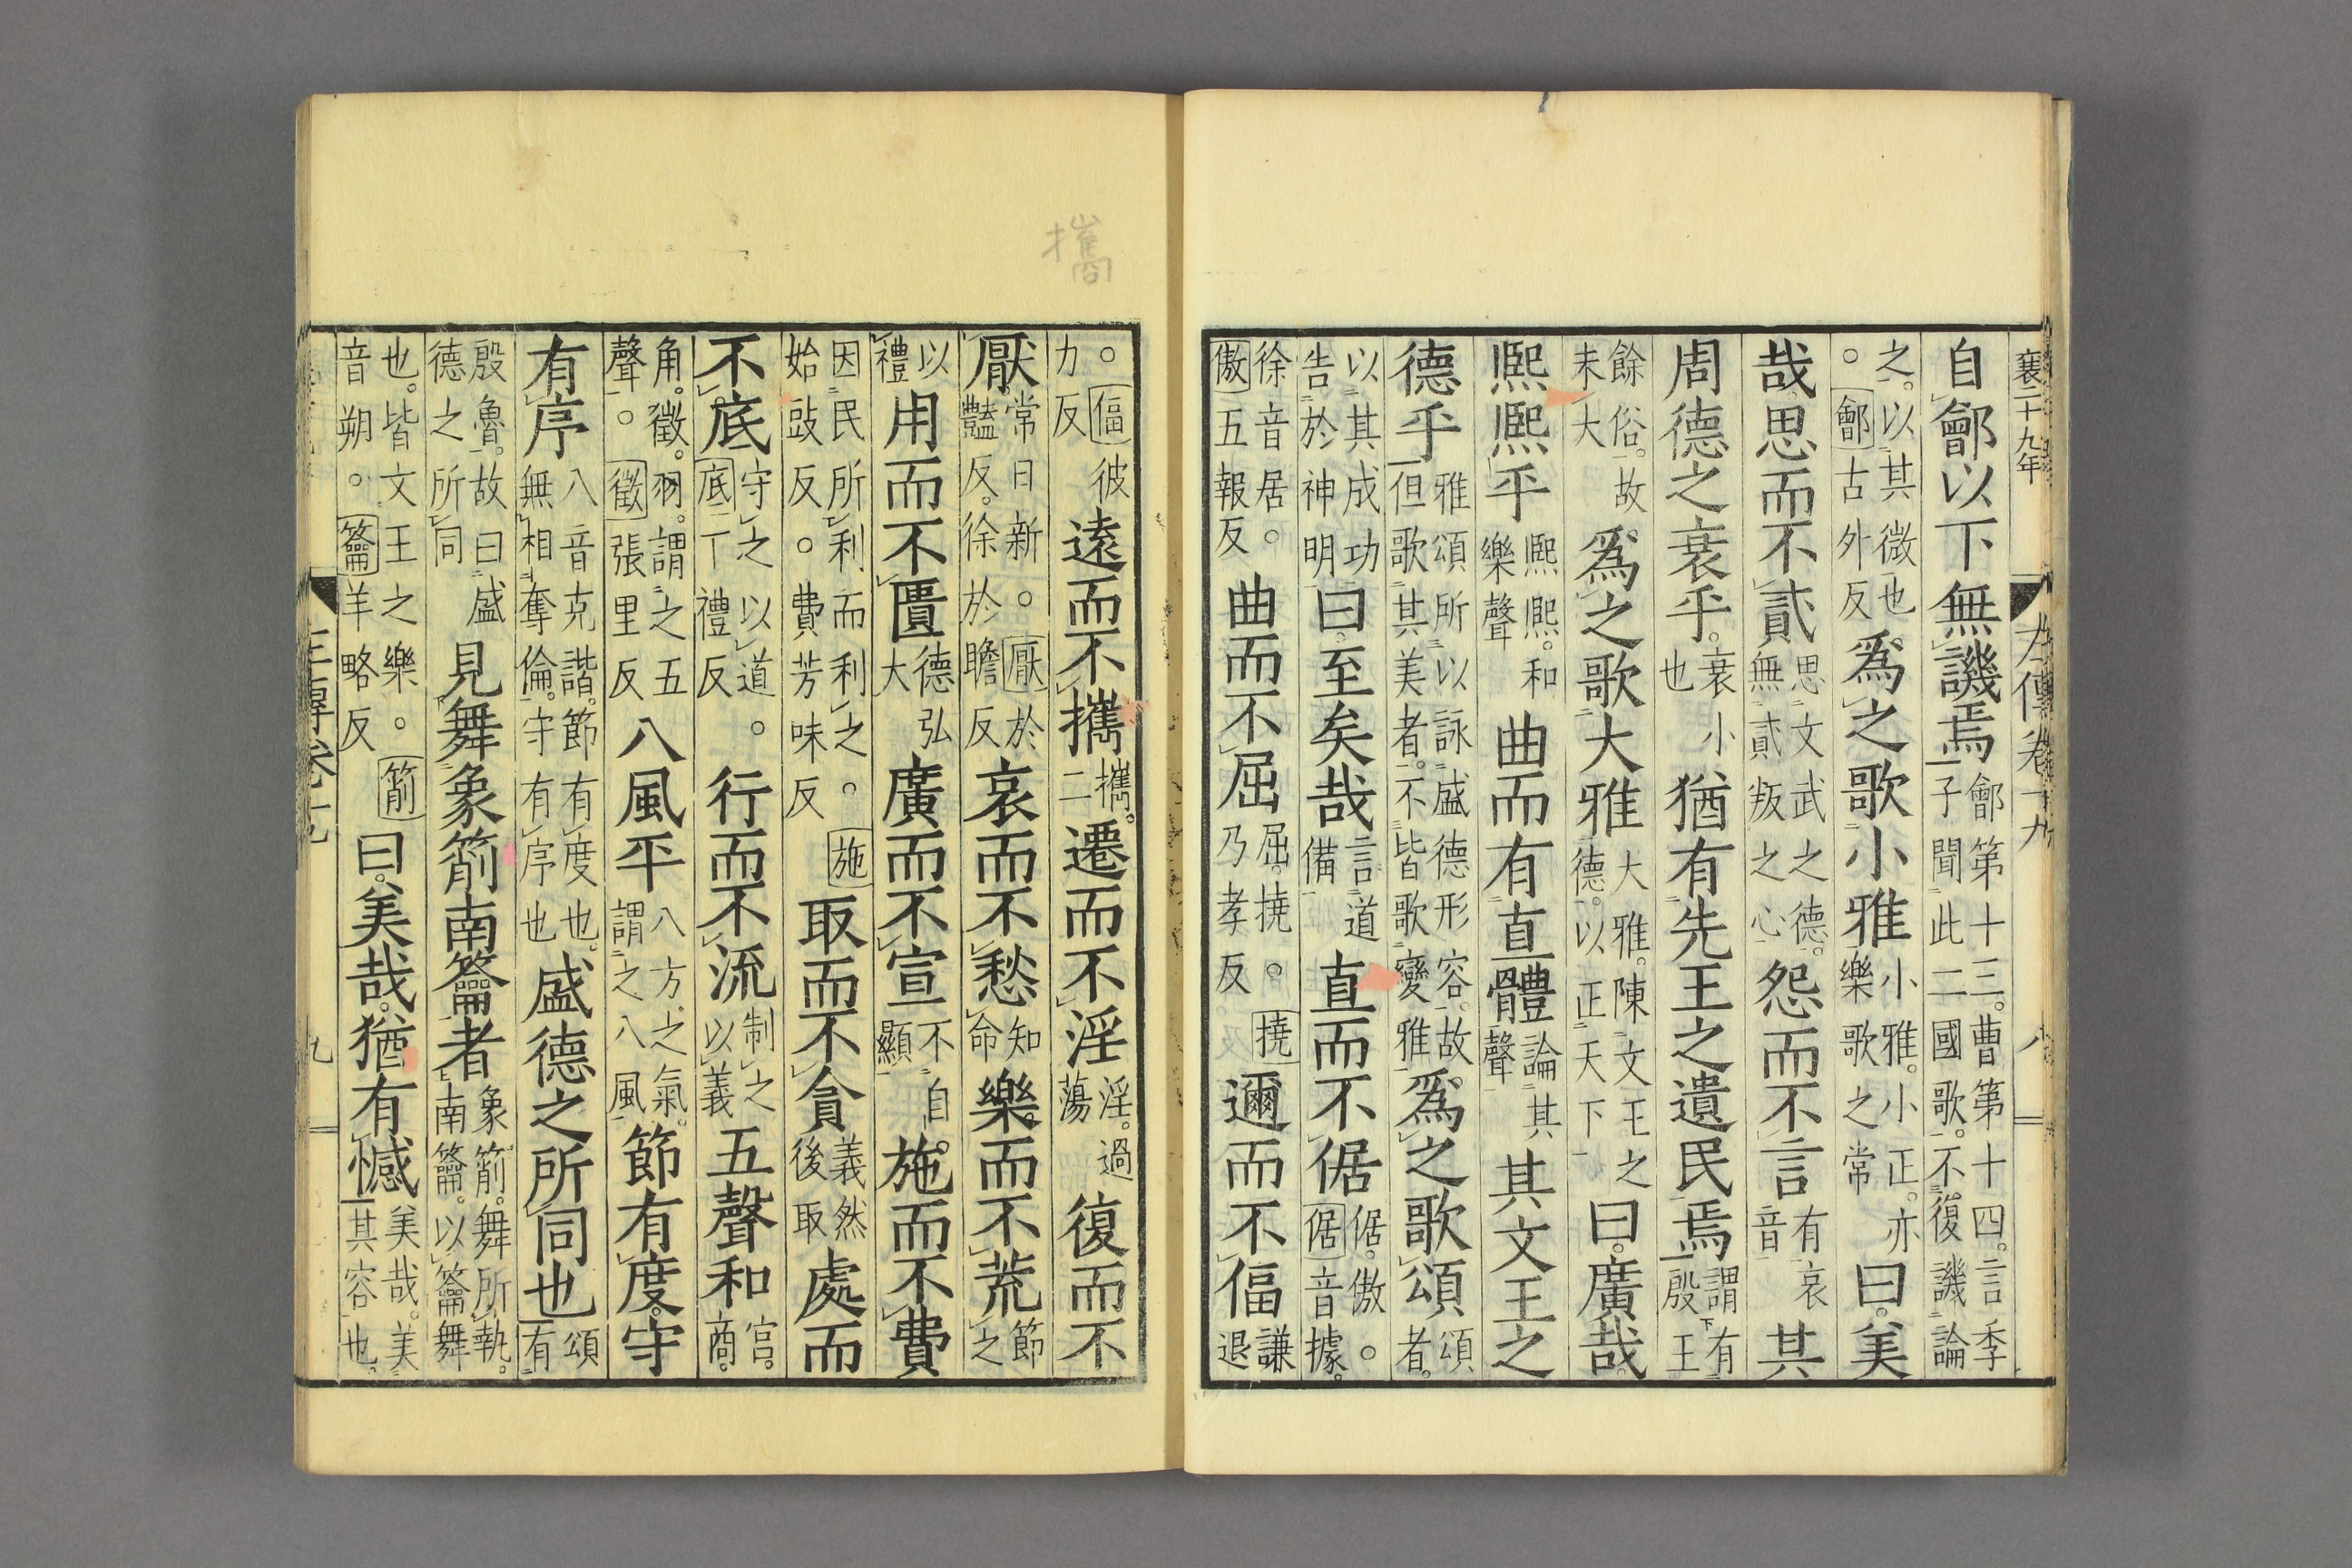 襄二十九年
左傳卷十九
八
自鄶以下無譏焉鄶第十三曹第十四言季子聞此二國歌不復譏論
之以其微也。鄶古外反爲之歌小雅小雅小正亦樂歌之常曰美
哉思而不貳思文武之德無貳叛之心怨而不言有哀音其
周德之衰乎衰小也猶有先王之遺民焉謂有殷王
餘俗故未大爲之歌大雅大雅陳文王之德以正天下曰廣哉
熙熙乎熙熙和樂聲曲而有直體論其聲其文王之
德乎雅頌所以詠盛德形容故但歌其美者不皆歌變雅爲之歌頌頌者
以其成功告於神明曰至矣哉言道備直而不倨倨傲。倨音據
徐音居。傲五報反曲而不屈屈撓。撓乃孝反邇而不偪謙退
攜
。偪彼力反遠而不攜攜二遷而不淫淫過蕩復而不
厭常日新。厭於豔反徐於瞻反哀而不愁知命樂而不荒節之
以禮用而不匱德弘大廣而不宣不自顯施而不費
因民所利而利之。施始豉反。費芳味反取而不貪義然後取處而
不底守之以道。底丁禮反行而不流制之以義五聲和宮商
角徵羽謂之五聲。徵張里反八風平八方之氣謂之八風節有度守
有序八音克諧節有度也無相奪倫守有序也盛德之所同也頌有
殷魯故曰盛德之所同見舞象箾南籥者象箾舞所執南籥以籥舞
也皆文王之樂。箾音朔。籥羊略反曰美哉猶有憾美哉美其容也
左傳卷十九
九